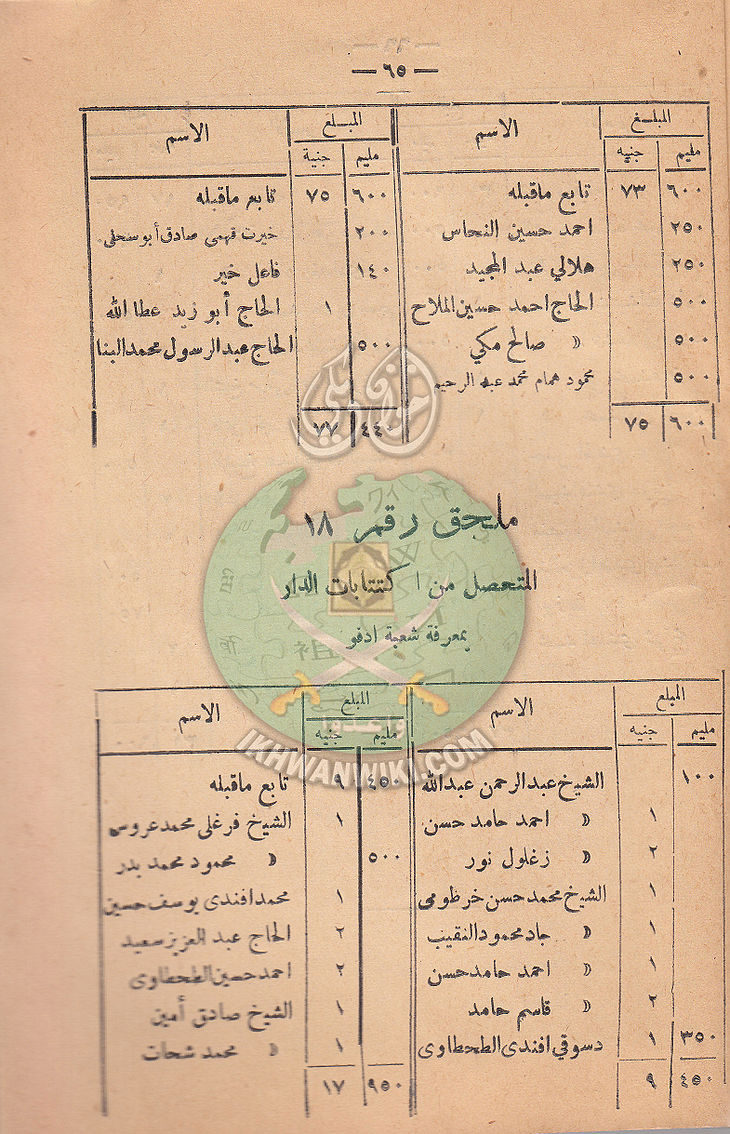 — ٦٥ —
المبلغ الاسم
مليم جنيه
٦٠٠ ٧٣ تابع ماقبله
٢٥٠ احمد حسين النحاس
٢٥٠ هلالي عبد المجيد
٥٠٠ الحاج احمد حسين الملاح
٥٠٠ » صالح مكي
٥٠٠ محمود همام محمد عبد الرحيم
٦٠٠ ٧٥
المبلغ الاسم
مليم جنية
٦٠٠ ٧٥ تابع ماقبله
٢٠٠ خيرت فهمى صادق أبو سحلى
١٤٠ فاعل خير
١ الحاج أبو زيد عطا الله
٥٠٠ الحاج عبد الرسول محمد البنا
٤٤٠ ٧٧
ملحق رقم ١٨
المتحصل من اكتتابات الدار
بمعرفة شعبة ادفو
المبلغ الاسم
مليم جنيه
١٠٠ الشيخ عبد الرحمن عبدالله
١ » احمد حامد حسن
٢ » زغلول نور
١ الشيخ محمد حسن خرظومى
١ » جاد محمود النقيب
١ » احمد حامد حسن
٢ » قاسم حامد
٣٥٠ ١ دسوقي افندى الطحطاوى
٤٥٠ ٩
المبلغ الاسم
مليم جنيه
٤٥٠ ٩ تابع ماقبله
١ الشيخ فرغلى محمد عروس
٥٠٠ » محمود محمد بدر
١ محمد افندى يوسف حسين
٢ الحاج عبد العزيز سعيد
٢ احمد حسين الطحطاوى
١ الشيخ صادق أمين
١ » محمد شحات
٩٥٠ ١٧
وأعدوا
IKHWANWIKI.COM